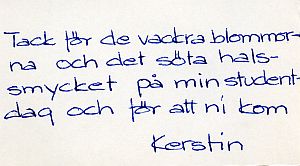 Tack för de vackra blommor-
na och det söta hals-
smycket på min student-
dag och för att ni kom
Kerstin